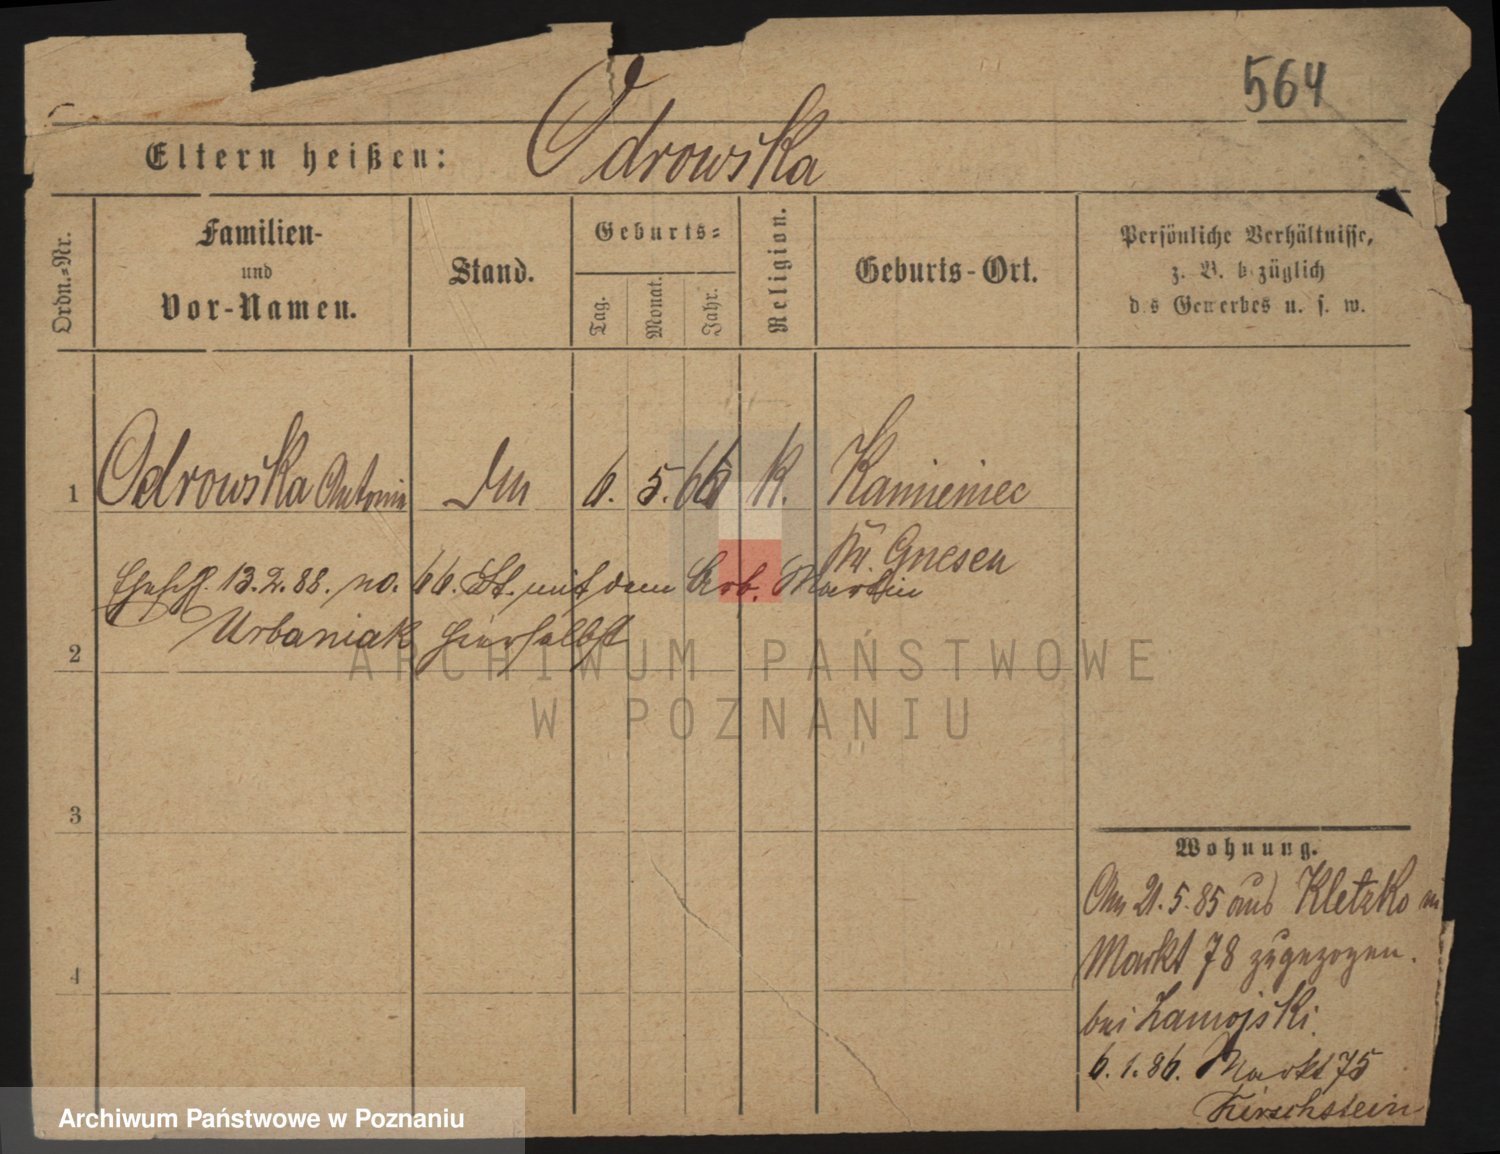 564
Eltern heißen: Odrowska
Ordn.-Nr.
Familien-
und
Vor-Namen.
Stand.
Geburts-
Tag.
Monat.
Jahr.
Religion.
Geburts-Ort.
Persönliche Verhältnisse,
z. B. bezüglich
des Gewerbes u. s. w.
1 Odrowska Antonie 6. 5. 66 K. Kamieniec
Kr. Gnesen
13.2.88. no. 66. St. mit dem Arb. Martin
2 Urbaniak hierselbst
3
4
Wohnung.
21.5.85 aus Kletzko
Markt 78 zugezogen.
bei Zamojski.
6.1.86. Markt 75
Hirschstein
ARCHIWUM PAŃSTWOWE
W POZNANIU
Archiwum Państwowe w Poznaniu